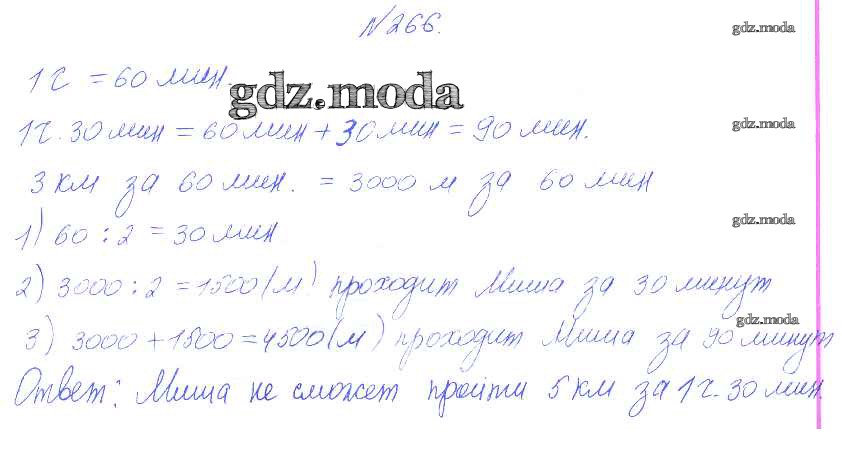 №266.
gdz.moda
1 ч = 60 мин.
gdz.moda
1ч. 30 мин = 60 мин + 30 мин = 90 мин.
gdz.moda
3 км за 60 мин. = 3000 м за 60 мин
1) 60 : 2 = 30 мин
gdz.moda
2) 3000 : 2 = 1500 (м) проходит Миша за 30 минут
gdz.moda
3) 3000 + 1500 = 4500 (м) проходит Миша за 90 минут
Ответ: Миша не сможет пройти 5 км за 1 ч. 30 мин.